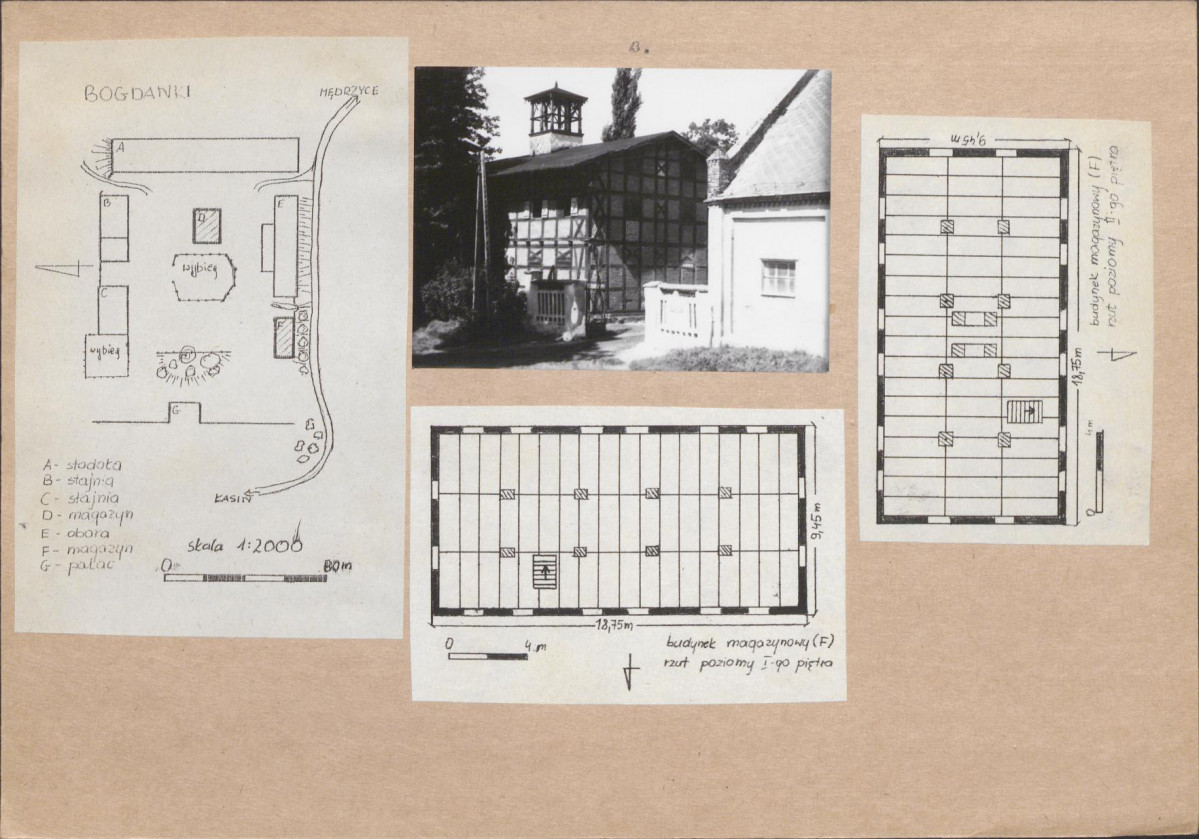 B.
BOGDANKI
MĘDRZYCE
A
B
D
E
wybieg
C
F
wybieg
G
A - stodoła
B - stajnia
C - stajnia
D - magazyn
E - obora
F - magazyn
G - pałac
ŁASIN
skala 1:2000
0 80m
9,45m
18,75m
0 4m
budynek magazynowy (F)
rzut poziomy I-go piętra
9,45m
18,75m
0 4m
budynek magazynowy (F)
rzut poziomy II-go piętra